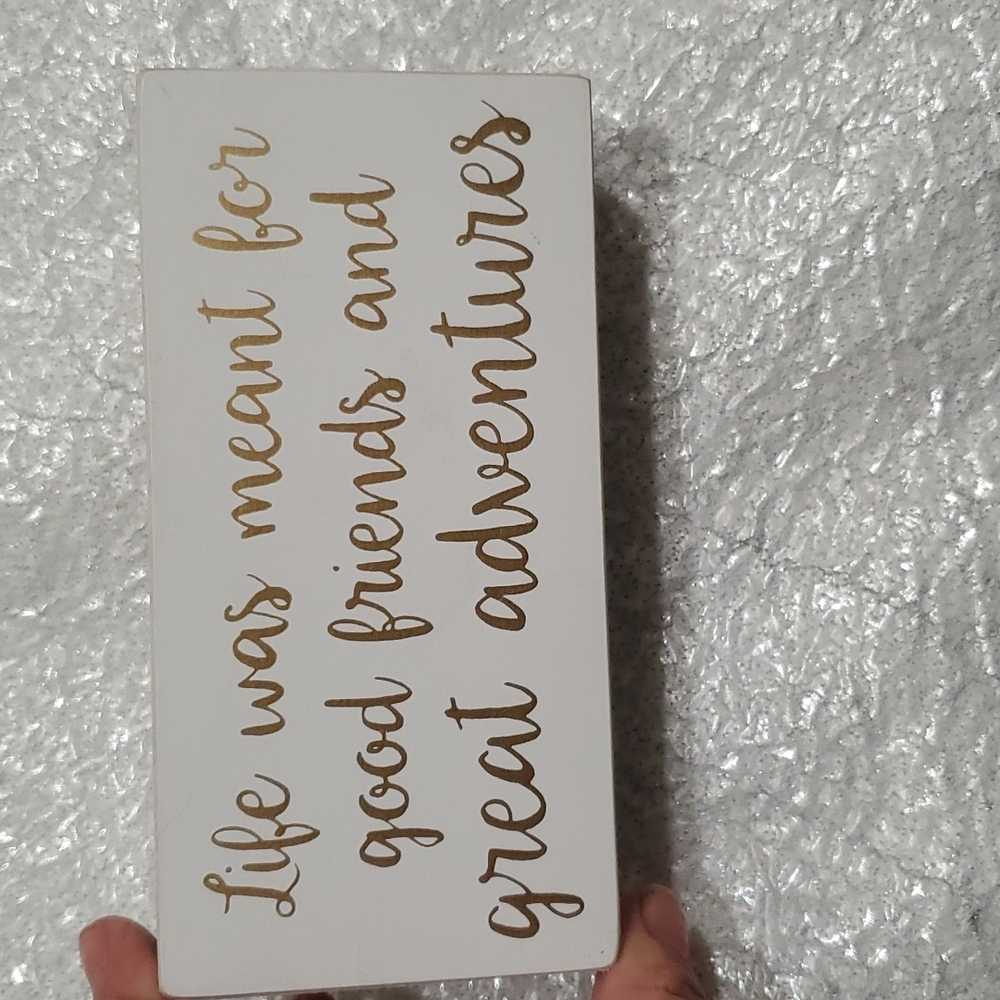 Life was meant for
good friends and
great adventures